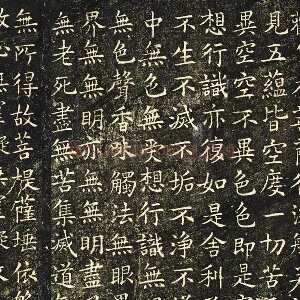 見五蘊皆空度一切苦
異空空不異色色即是
想行識亦復如是舍利
不生不滅不垢不淨不
中無色無受想行識無
無色聲香味觸法無眼
界無無明亦無無明盡
無老死盡無苦集滅道
無所得故菩提薩埵依